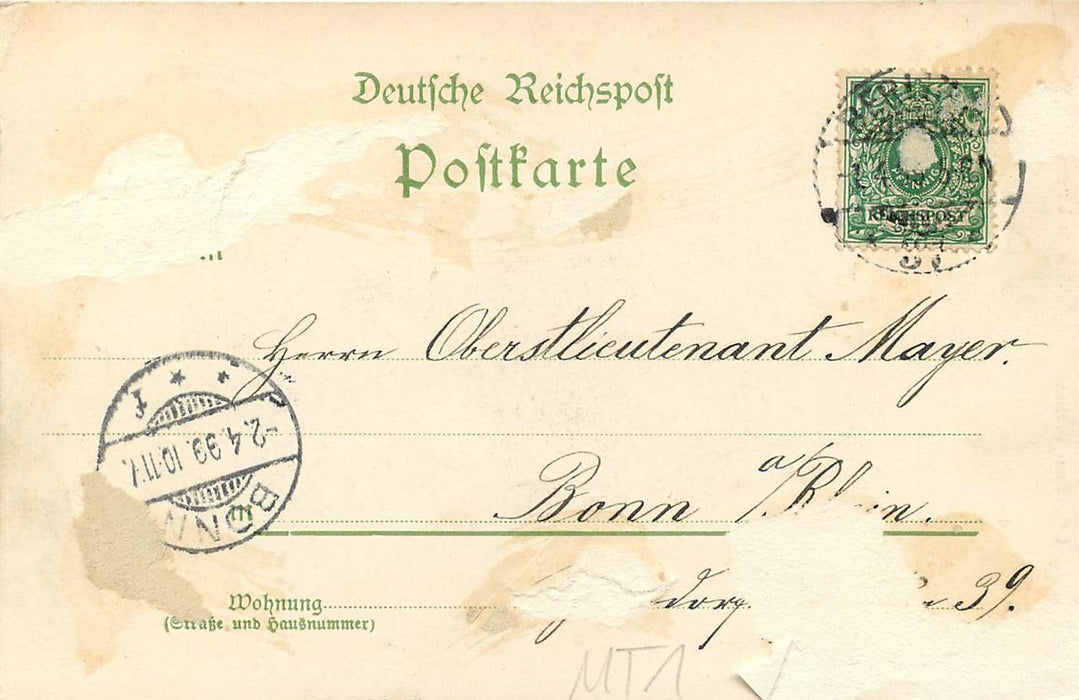 Deutsche Reichspost
Postkarte
PFENNIG
REICHSPOST
Herrn Oberstlieutenant Mayer.
Bonn a/Rhein.
dorf. 39.
Wohnung
(Straße und Hausnummer)
BONN
2.4.99. 10-11V.
* * f
MT1